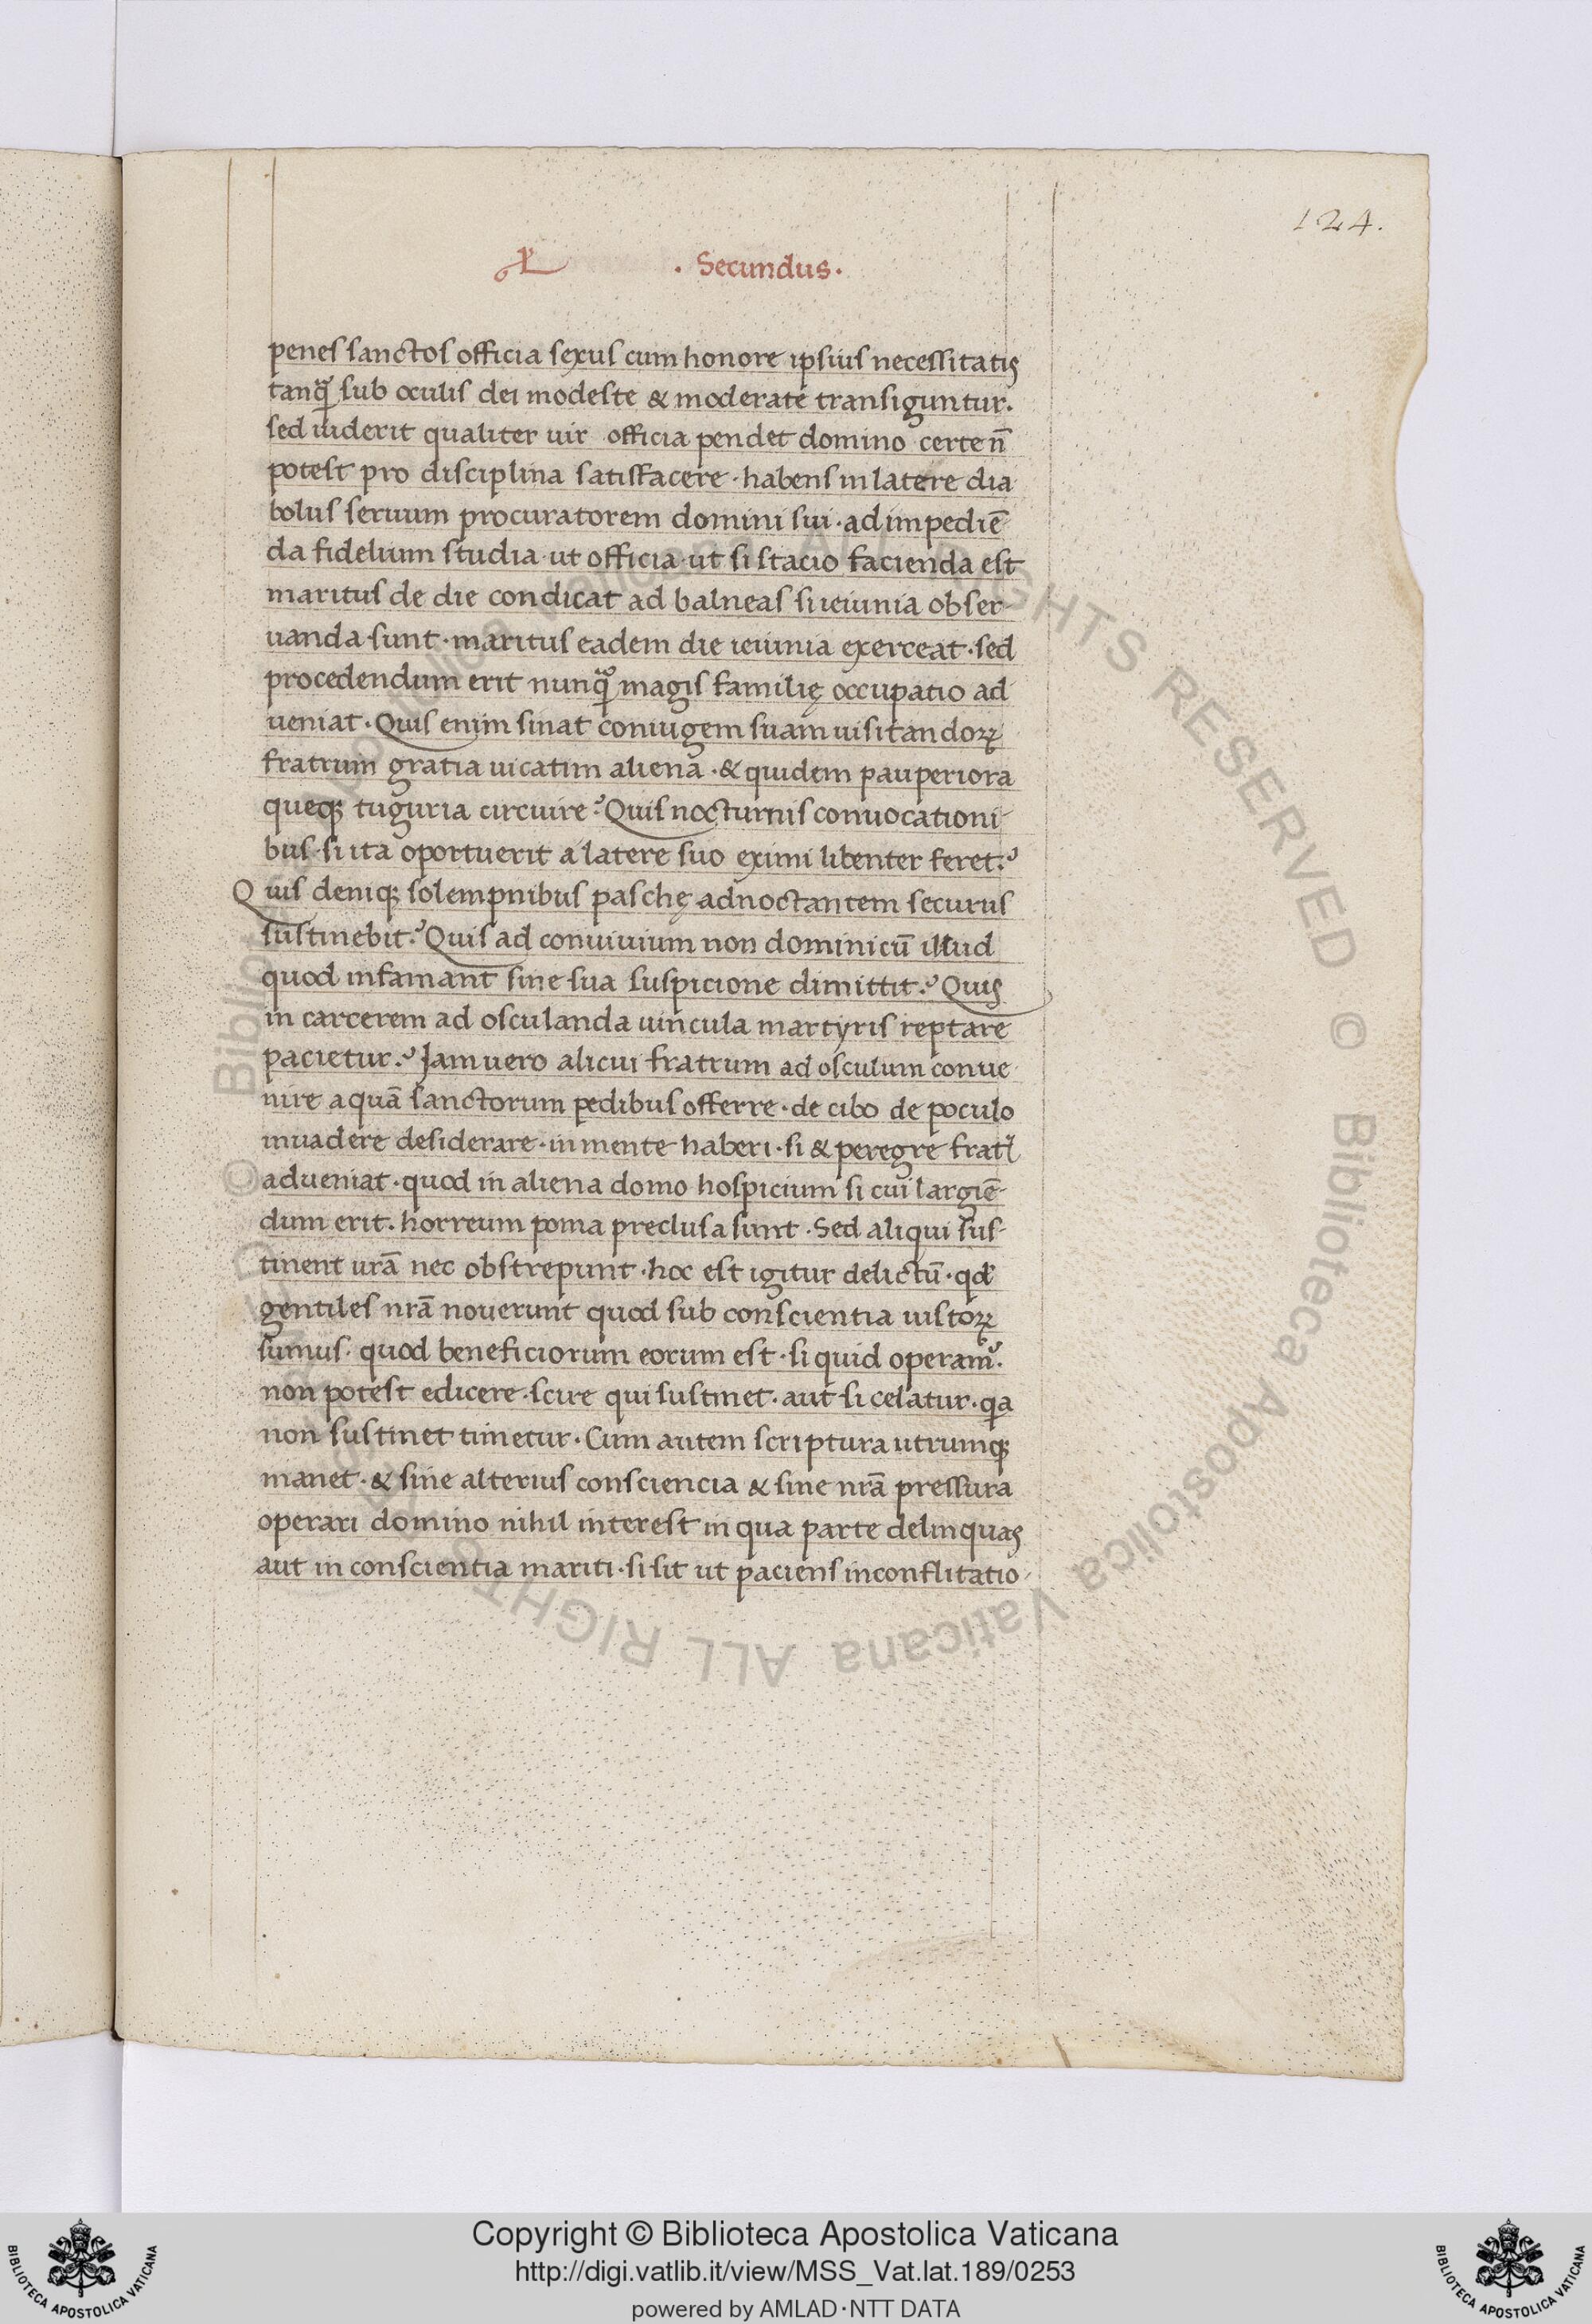 124.
. Secundus.
penes sanctos officia sexus cum honore ipsius necessitatis
tanq̃ sub oculis dei modeste & moderate transiguntur.
sed uiderit qualiter uir officia pendet domino certe n̄
potest pro disciplina satisfacere · habens in latere dia
bolus seruum procuratorem domini sui · ad impediē
da fidelium studia · ut officia · ut si stacio facienda est
maritus de die condicat ad balneas si ieiunia obser-
uanda sunt · maritus eadem die ieiunia exerceat · sed
procedendum erit nunq̃ magis familię occupatio ad
ueniat · Quis enim sinat coniugem suam uisitandoꝝ
fratrum gratia uicatim aliena · & quidem pauperiora
queqꝫ tuguria circuire? Quis nocturnis conuocationi-
bus · si ita oportuerit a latere suo eximi libenter feret?
Quis deniqꝫ solempnibus paschę adnoctantem securus
sustinebit? Quis ad conuiuium non dominicū illud
quod infamant sine sua suspicione dimittit? Quis
in carcerem ad osculanda uincula martyris reptare
pacietur? Jam uero alicui fratrum ad osculum conue
nire aquā sanctorum pedibus offerre · de cibo de poculo
inuadere desiderare · in mente haberi · si & peregre frat᷑
adueniat · quod in aliena domo hospicium si cui largiē-
dum erit. horreum poma preclusa sunt · Sed aliqui sus-
tinent urā nec obstrepunt · hoc est igitur delictū · qđ
gentiles nrā nouerunt quod sub conscientia iustoꝝ
sumus · quod beneficiorum eorum est · si quid operam᷒.
non potest edicere · scire qui sustinet · aut si celatur · qa
non sustinet timetur · Cum autem scriptura utrumqꝫ
manet · & sine alterius consciencia & sine nrā pressura
operari domino nihil interest in qua parte delinquas
aut in conscientia mariti · si sit ut paciens inconflitatio-
Copyright © Biblioteca Apostolica Vaticana
http://digi.vatlib.it/view/MSS_Vat.lat.189/0253
powered by AMLAD·NTT DATA
BIBLIOTECA APOSTOLICA VATICANA
BIBLIOTECA APOSTOLICA VATICANA
© Biblioteca Apostolica Vaticana ALL RIGHTS RESERVED
© Biblioteca Apostolica Vaticana ALL RIGHT